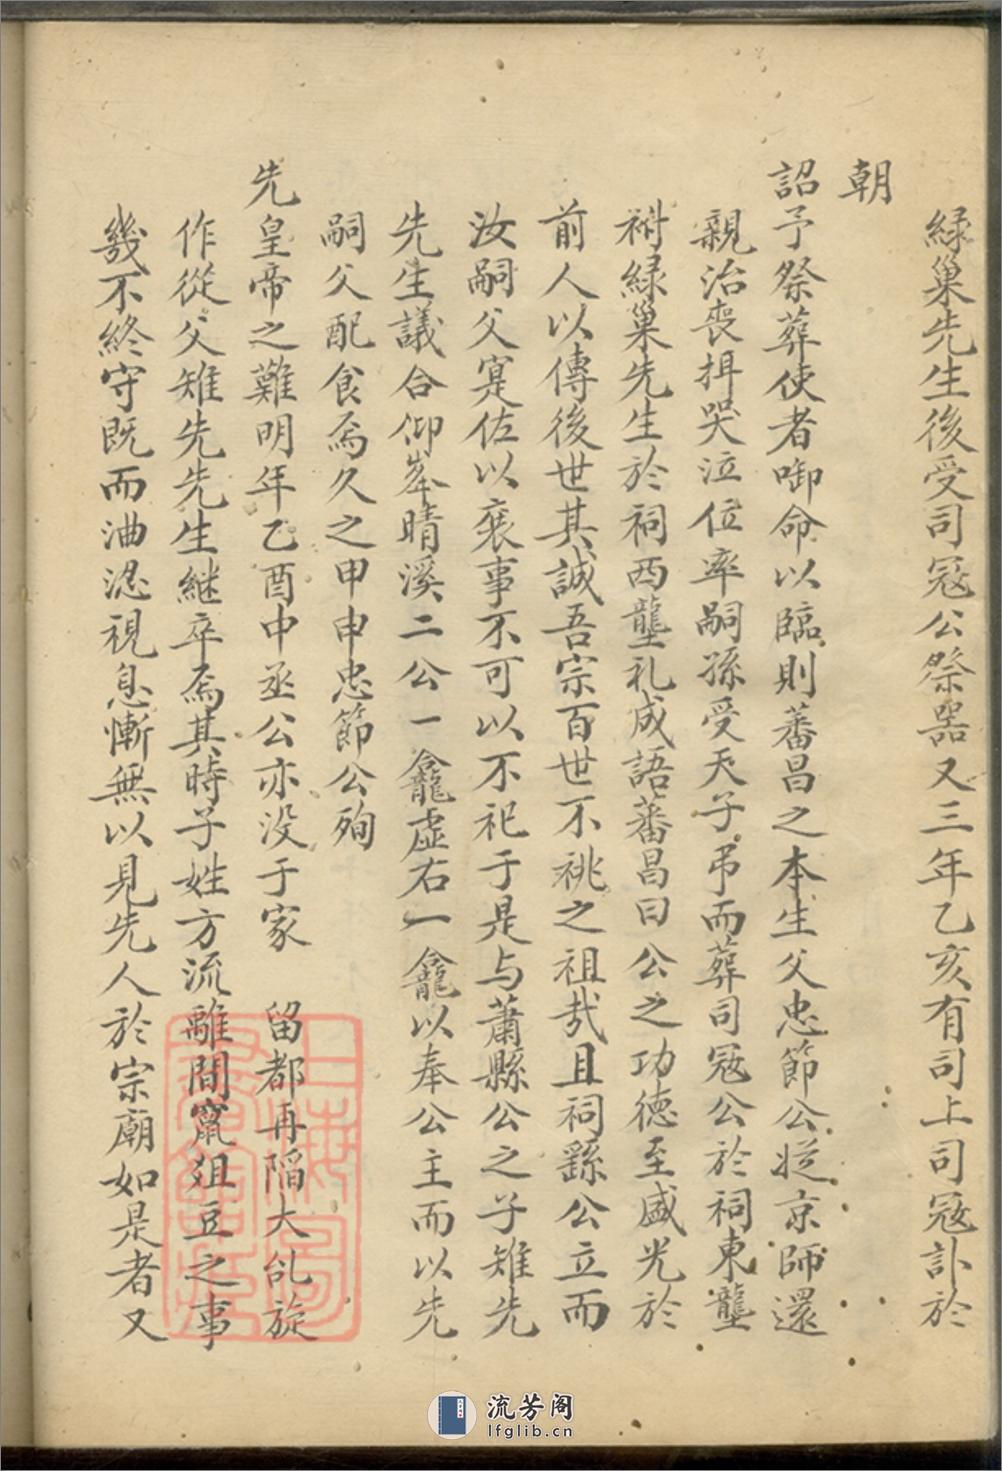 綠巢先生後受司寇公祭器又三年乙亥有司上司寇訃於
朝
詔予祭葬使者啣命以臨則蕃昌之本生父忠節公從京師還
親治喪揖哭泣位率嗣孫受天子弔而葬司寇公於祠東壟
祔綠巢先生於祠西壟礼成語蕃昌曰公之功德至盛光於
前人以傳後世其誠吾宗百世不祧之祖哉且祠繇公立而
汝嗣父寔佐以襄事不可以不祀于是与蕭縣公之子雉先
先生議合仰峯晴溪二公一龕虛右一龕以奉公主而以先
嗣父配食焉久之甲申忠節公殉
先皇帝之難明年乙酉中丞公亦没于家 留都再陷大乱旋
作從父雉先先生継卒焉其時子姓方流離間竄俎豆之事
幾不終守既而洒涊視息慚無以見先人於宗廟如是者又
流芳阁
lfglib.cn